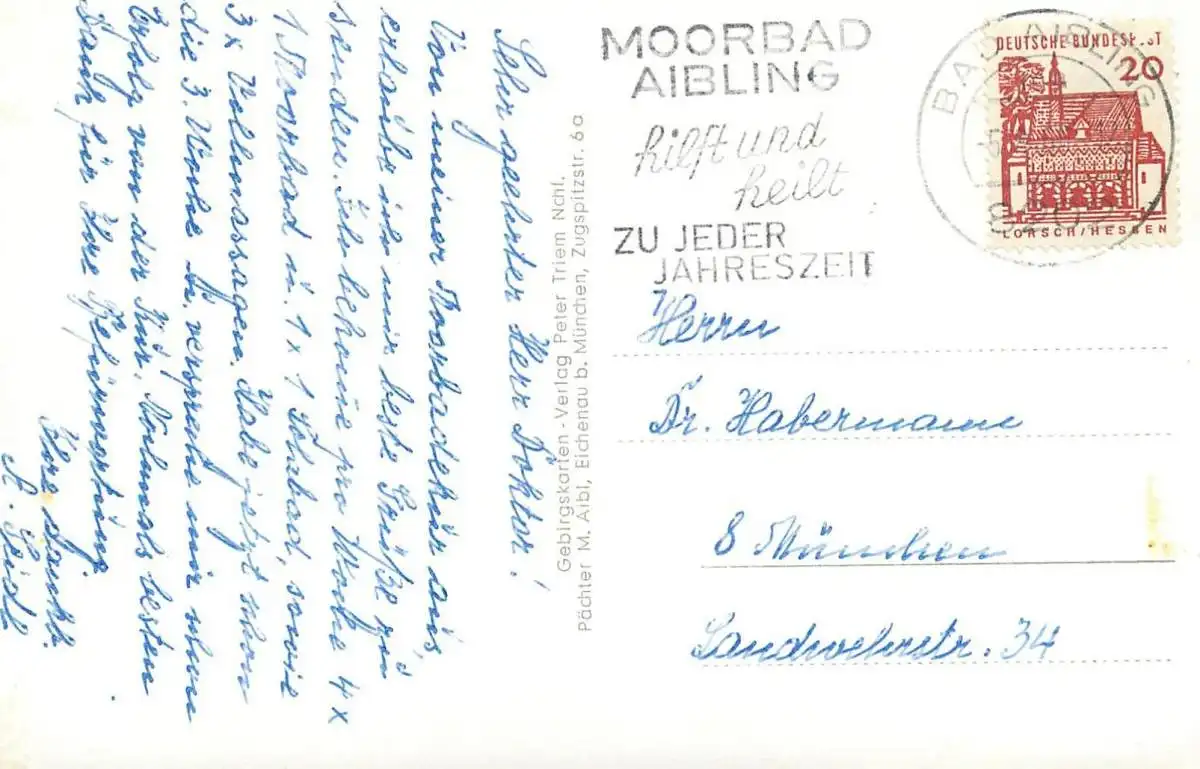 Sehr geehrter Herr Doktor!
Von meiner Moorbadekur aus,
erlaube ich mir beste Grüße zu
senden. Ich bekomme pro Woche 4x
1 Moorbad u. 1x Schubad, sowie
3x Vollmassagen. Habe jetzt schon
die 3. Woche u. verspreche mir schon
Erfolg von der Kur. Nochmals besten
Dank für Ihre Befürwortung.
Ihre dankb.
Gebirgskarten-Verlag Peter Triem Nchl.
Pächter M. Aibl, Eichenau b. München, Zugspitzstr. 6a
MOORBAD
AIBLING
hilft und
heilt
ZU JEDER
JAHRESZEIT
BAD AIBLING
DEUTSCHE BUNDESP ST
20
LORSCH/HESSEN
Herrn
Dr. Habermann
8 München
Landwehrstr. 34